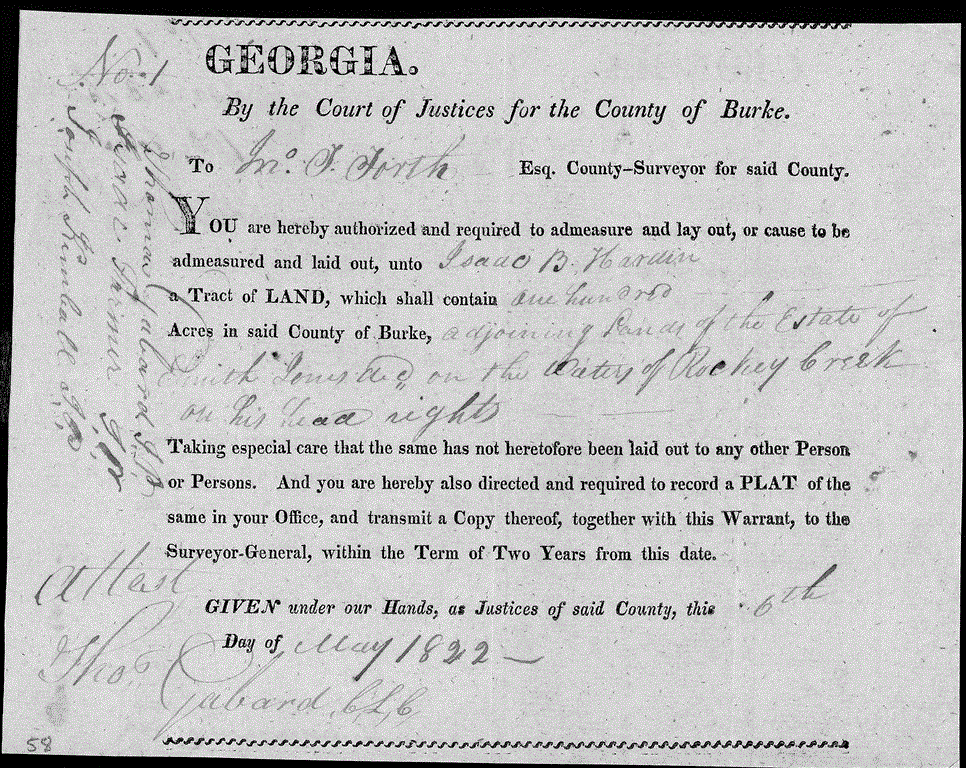 GEORGIA.
By the Court of Justices for the County of Burke.
To Jno. F. Forth Esq. County-Surveyor for said County.
YOU are hereby authorized and required to admeasure and lay out, or cause to be
admeasured and laid out, unto Isaac B. Hardin
a Tract of LAND, which shall contain one hundred
Acres in said County of Burke, adjoining Lands of the Estate of
Smith Jones Decd on the Waters of Rockey Creek
on his head rights
Taking especial care that the same has not heretofore been laid out to any other Person
or Persons. And you are hereby also directed and required to record a PLAT of the
same in your Office, and transmit a Copy thereof, together with this Warrant, to the
Surveyor-General, within the Term of Two Years from this date.
GIVEN under our Hands, as Justices of said County, this 6th
Day of May 1822
Attest
Thos. Gabard, C,L,C,
No. 1
Thomas Gabard J,P,
Isaac J,P,
Joseph Kimball J,P,
58